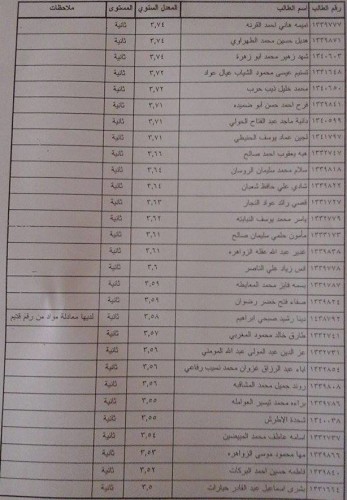 رقم الطالب اسم الطالب المعدل السنوي المستوى ملاحظات
١٣٣٩٧٧٧ اميمه هاني احمد القرنه ٣,٧٤ ثانية
١٣٣٩٨٧١ هديل حسين محمد الطهراوي ٣,٧٤ ثانية
١٣٤٠٦٠٣ شهد زهير محمد ابو زهرة ٣,٧٤ ثانية
١٣٣١٦٤٨ تسنيم عيسى محمود الشياب عيال عواد ٣,٧٢ ثانية
١٣٤٠٦٥٠ محمد خليل ذيب حرب ٣,٧٢ ثانية
١٣٣٩٨٤١ فرح احمد حسن ابو ضميده ٣,٧١ ثانية
١٣٤٠٥٩٩ دانية ماجد عبد الفتاح الخولي ٣,٧١ ثانية
١٣٤١٧٩٧ لجين عماد يوسف الحنيطي ٣,٧١ ثانية
١٣٣٢٧٤٧ هبه يعقوب احمد صالح ٣,٦٦ ثانية
١٣٣٩٨١٨ سلام محمد سليمان الروسان ٣,٦٤ ثانية
١٣٣٢٨١٢ شادي علي حافظ شعبان ٣,٦٤ ثانية
١٣٣١٧٢٧ قصي رائد عواد النجار ٣,٦٣ ثانية
١٣٣٢٧٧٦ ياسر محمد يوسف ٣,٦٢ ثانية
١٣٣٣١٧٣ مأمون حلمي سليمان صالح ٣,٦١ ثانية
١٣٣٩٨٣٨ غدير عبد الله عقله الزواهره ٣,٦١ ثانية
١٣٣٩٧٧٨ انس زياد علي الناصر ٣,٦ ثانية
١٣٣٢٧٨٧ بسمه فايز محمد المعايطه ٣,٥٩ ثانية
١٣٣٩٨٢٤ صفاء فتح خضر رضوان ٣,٥٩ ثانية
١٤٣٨٧٩٢ دينا رشيد صبحي ابراهيم ٣,٥٨ ثانية لديها معادلة مواد من رقم قديم
١٣٣٢٧٤١ طارق خالد محمود المغربي ٣,٥٧ ثانية
١٣٣٢٧٣١ عز الدين عبد المولى عبد الله المومني ٣,٥٦ ثانية
١٣٣٢٨٥٤ اباء عبد الرزاق غزوان محمد نسيب رفاعي ٣,٥٦ ثانية
١٣٣٩٨٠٨ روند جميل محمد المشاقبه ٣,٥٦ ثانية
١٣٣٢٧٨٦ براءه محمد تيسير العوامله ٣,٥٥ ثانية
١٣٤٠٠٣٨ شحدة الاطرش ٣,٥٥ ثانية
١٣٣٢٧٣٧ اسامه عاطف محمد المبيضين ٣,٥٤ ثانية
١٣٣٩٨٦٦ مها محمود موسى الزواهره ٣,٥٣ ثانية
١٣٣٩٨٤٠ فاطمه حسين احمد البركات ٣,٥٢ ثانية
١٣٣١٦٦٤ بشرى اسماعيل عبد القادر جبارات ٣,٥ ثانية